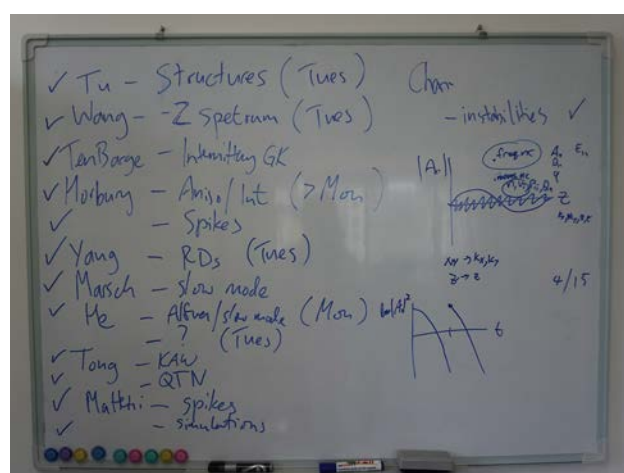 ✓ Tu – Structures (Tues)
✓ Wang – -Z Spetrum (Tues)
✓ TenBarge – Intermittency GK
✓ Horbury – Aniso/Int (>Mon)
✓ – Spikes
✓ Yang – RDs (Tues)
✓ Marsch – slow mode
✓ He – Alfven/slow mode (Mon)
– ? (Tues)
✓ Tong – KAW
✓ – QTN
✓ Matthi – spikes
✓ – simulations
– instabilities ✓
Z
z → z
4/15
t